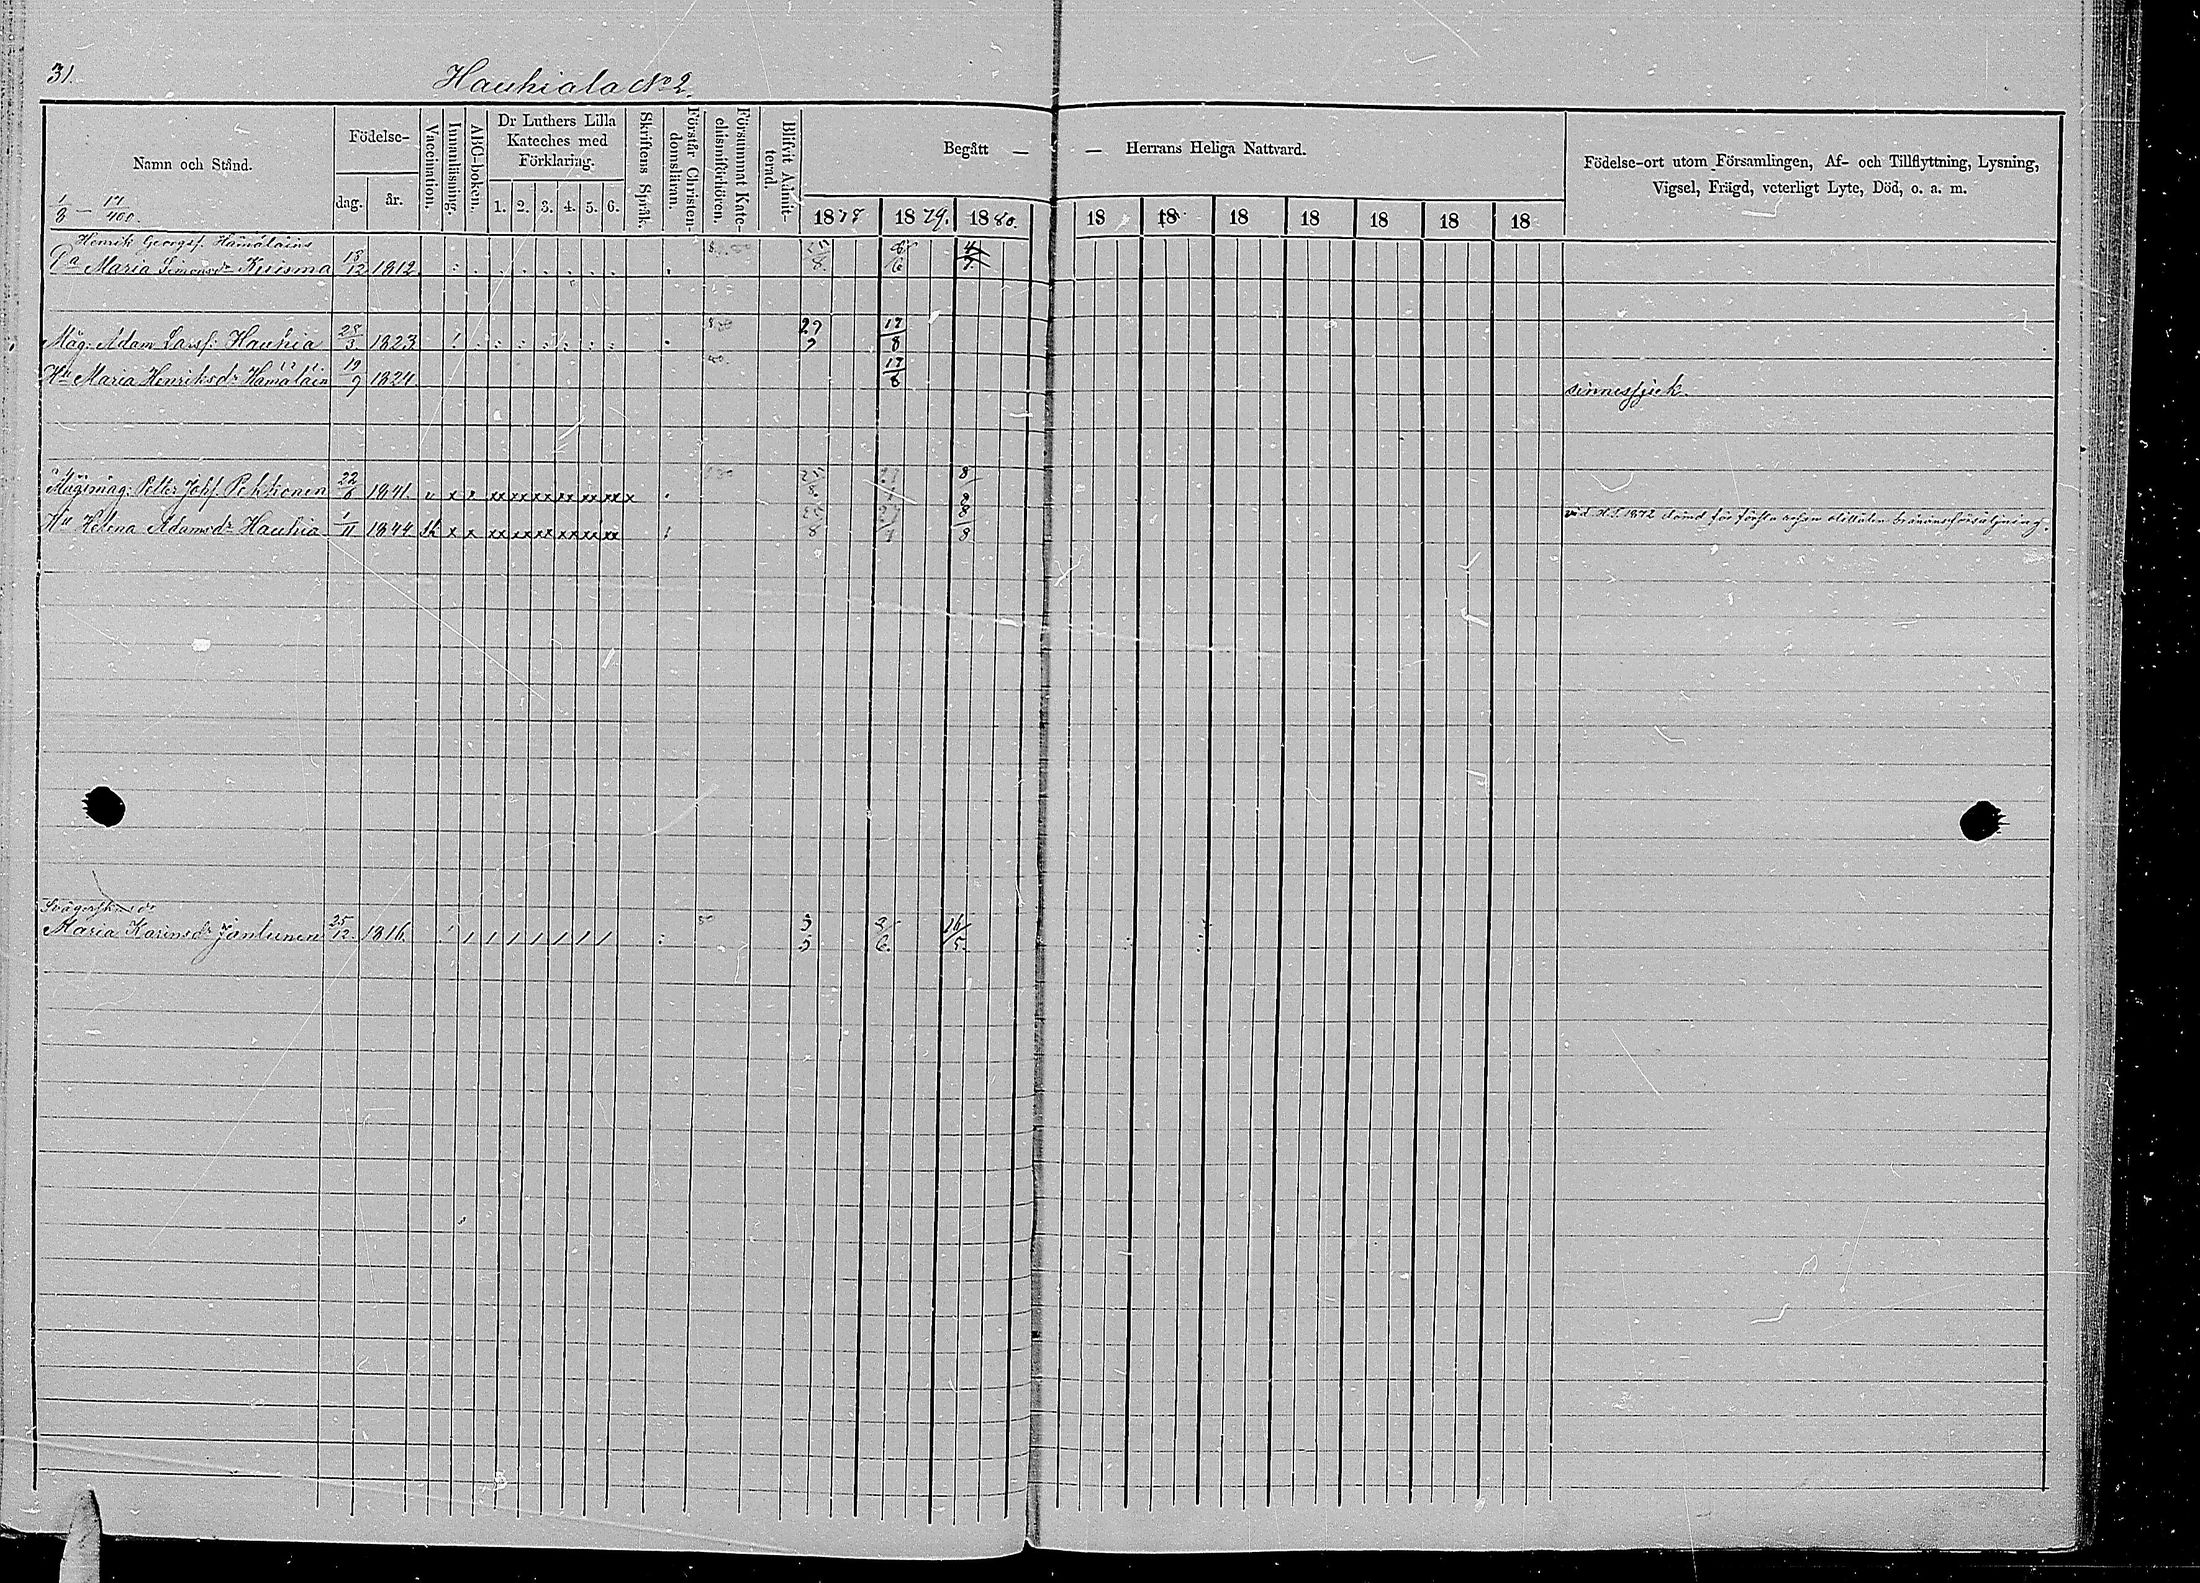 31.
Hauhiala No 2.
Namn och Stånd.
Födelse-
dag.
år.
Vaccination.
Innanläsning.
ABC-boken.
Dr Luthers Lilla
Kateches med
Förklaring.
1. 2. 3. 4. 5. 6.
Skriftens Språk.
Förstår Christen-
domsläran.
Försummat Kate-
chismiförhören.
Blifvit Admit-
terad.
Begått — — Herrans Heliga Nattvard.
1878 1879. 1880. 18 18 18 18 18 18 18
Födelse-ort utom Församlingen, Af- och Tillflyttning, Lysning,
Vigsel, Frägd, veterligt Lyte, Död, o. a. m.
1/8 — 17/400.
Henrik Georgsf. Hämäläins
Ea Maria Simonsdr Kuisma 18/12 1812. 25/8 8/6 4/7
Måg: Adam Larsf: Hauhia 28/3 1823 17/8
Hu Maria Henriksdr Hämäläin 19/9 1824 17/8 sinnessjuk.
Mågsmåg: Petter Johf. Pekkonen 22/6 1841. v x x xx xx xx xx xx xx x 25/8 8/8
Hu Helena Adamsdr Hauhia 1/11 1844 x x xx xx xx xx xx xx 25/8 8/8 vid H.T. 1872 dömd för första resan olofliga bränvinsförsäljning.
Svägerskans dr
Maria Karinsdr Jantunen 25/12 1816. 8/6. 16/5.